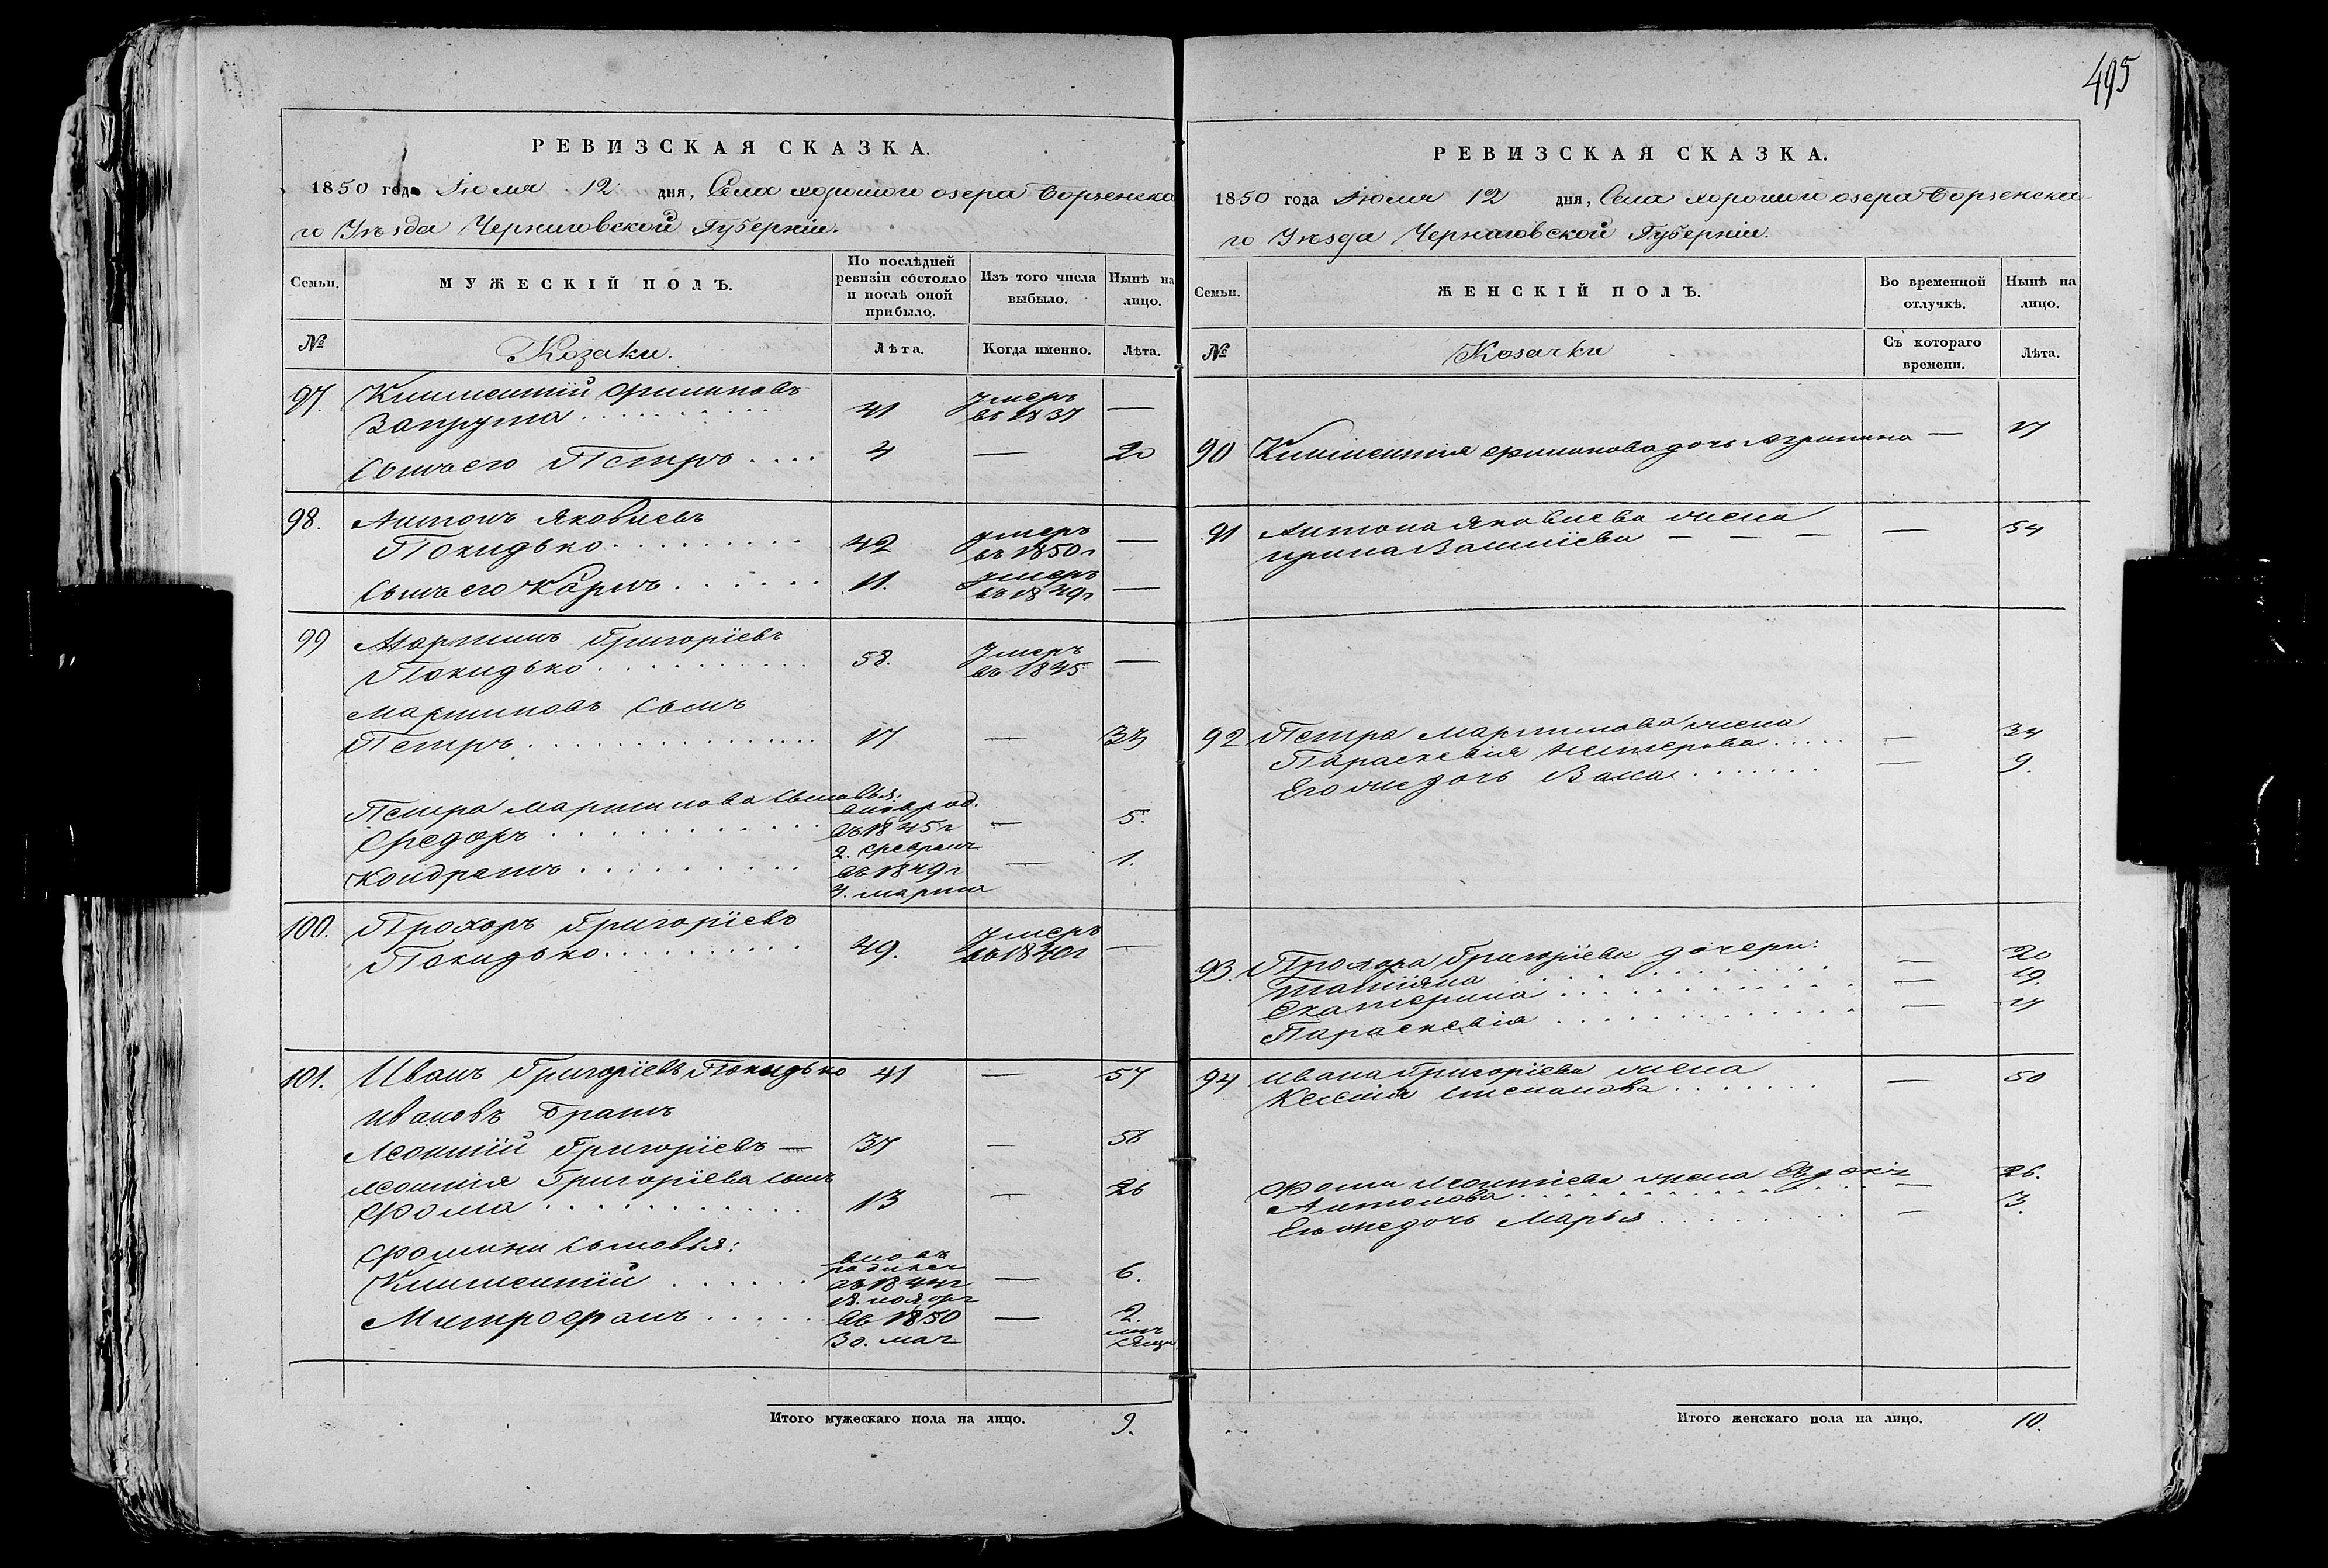 495
РЕВИЗСКАЯ СКАЗКА.
1850 года Іюля 12 дня, Села хорошого озера Борзенска
го Уѣзда Черниговской Губерніи.
Семьи.
МУЖЕСКІЙ ПОЛЪ.
По послѣдней ревизіи состояло и послѣ оной прибыло.
Изъ того числа выбыло.
Нынѣ на лицо.
№
Козаки.
Лѣта.
Когда именно.
Лѣта.
97. Климентій Филиповъ
Запрута 41 Умеръ въ 1837 —
Сынъ его Петръ 4 — 20
98. Антонъ Яковлевъ
Покидько 42 умеръ въ 1850г —
Сынъ его Карпъ 11. Умеръ въ 1849г —
99 Мартинъ Григоріевъ
Покидько 58. Умеръ въ 1845 —
Мартиновъ Сынъ
Петръ 17 — 33
Петра Мартинова Сыновья:
Федоръ вновь род. въ 1845г 2. Февраля — 5.
Кондратъ въ 1849г 4. марта — 1.
100. Прохоръ Григоріевъ
Покидько 49. Умеръ въ 1840г —
101. Иванъ Григоріевъ Покидько 41 — 57
Ивановъ Братъ
Леонтій Григоріевъ — 37 — 56
Леонтія Григоріева сынъ
Фома 13 — 26
Фомини сыновья:
Климентій вновь родился въ 1844г 18. ноября — 6.
Митрофанъ въ 1850 30. мая — 2. мѣсяца
Итого мужескаго пола на лицо. 9.
РЕВИЗСКАЯ СКАЗКА.
1850 года Іюля 12 дня, Села хорошого озера Борзенска
го Уѣзда Черниговской Губерніи.
Семьи.
ЖЕНСКІЙ ПОЛЪ.
Во временной отлучкѣ.
Нынѣ на лицо.
№
Козачки
Съ котораго времени.
Лѣта.
90 Климентія Филипова дочь Агрипина — 17
91 Антона Яковлева жена
Ирина Василіева — — — — 54
92 Петра Мартинова жена
Параскевія Нестерова — 34
Его же дочь Васа — 9.
93. Прохора Григоріева дочери:
Татіяна — 20
Екатерина — 19.
Параскевія — 17
94 Ивана Григоріева жена
Ксенія Степанова — 50
Фомы Леонтіева жена Евдокія
Антонова — 26.
Ея же дочь Марья — 3.
Итого женскаго пола на лицо. 10.